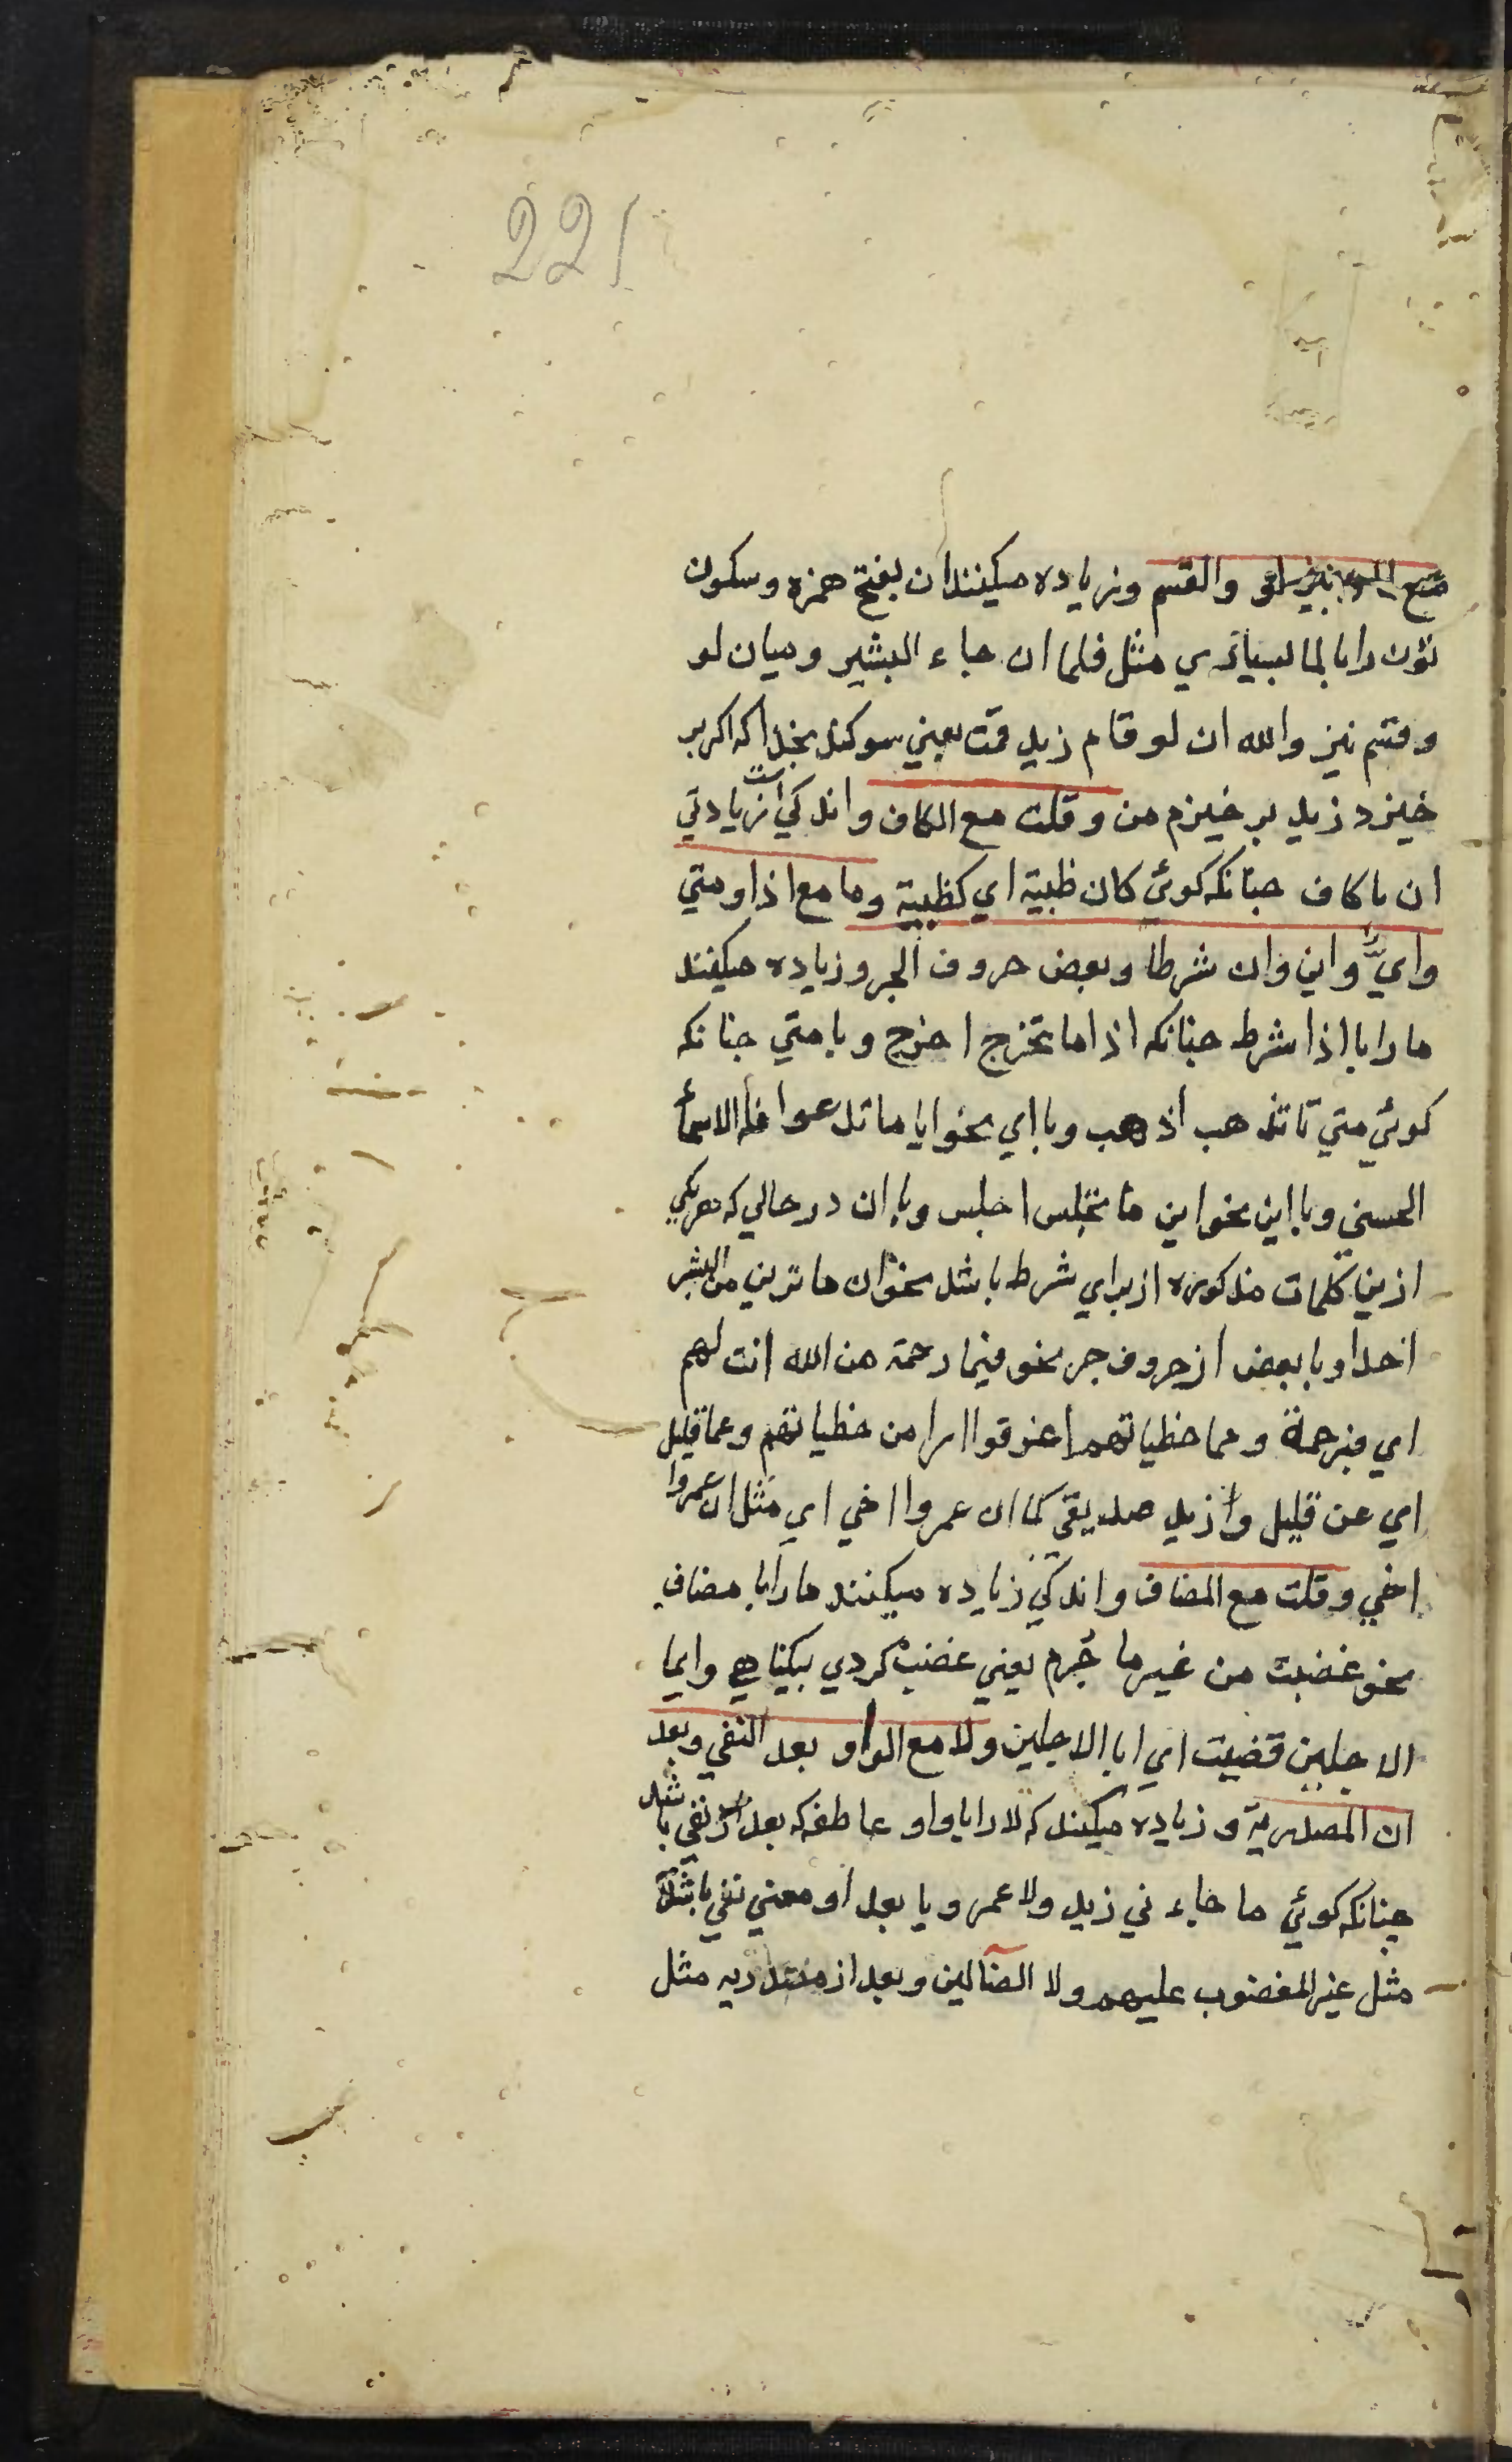 221
والقسم وزياده ميكنند ان بفتح همزه وسكون
نون را با لما بسياري مثل فلما ان جاء البشير وميان لو
وقسم نيز والله ان لو قام زيد قمت يعني سوكند بخدا كه اكر بر
خيزد زيد بر خيزم من وقلت مع الكاف واندكي است زيادتي
ان با كاف جنانكه كوئي كان ظبية اي كظبية وما مع اذا ومتي
واي واين وان شرطا وبعض حروف الجر وزياده ميكنند
ما را با اذا شرط جنانكه اذا ما تخرج اخرج وبا متي جنانكه
كوئي متي تا تذهب اذهب وبا اي نحو ايا ما تدعوا فله الاسمأ
الحسني وبا اين نحو اين ما تجلس اجلس وبا ان در حالي كه هر يكي
ازين كلمات مذكوره از براي شرط باشد نحو ان ما ترين من البشر
احدا وبا بعض از حروف جر نحو فبما رحمة من الله انت لهم
اي فبرحمة ومما خطياتهم اغرقوا من خطياتهم وعما قليل
اي عن قليل وزيد صديقي كما ان عمروا اخي اي مثل ان عمروا
اخي وقلت مع المضاف واندكي زياده ميكنند ما را با مضاف
نحو غضبت من غير ما جرم يعني غضب كردي بيكناهي وايما
الاجلين قضيت اي ايا الاجلين ولا مع الواو بعد النفي وبعد
ان المصدرية وزياده ميكند كه لا را با واو عاطفه كه بعد از نفي باشد
جنانكه كوئي ما جاءني زيد ولا عمرو يا بعد او معني نفي باشد
مثل غير المغضوب عليهم ولا الضآلين وبعد از مثل